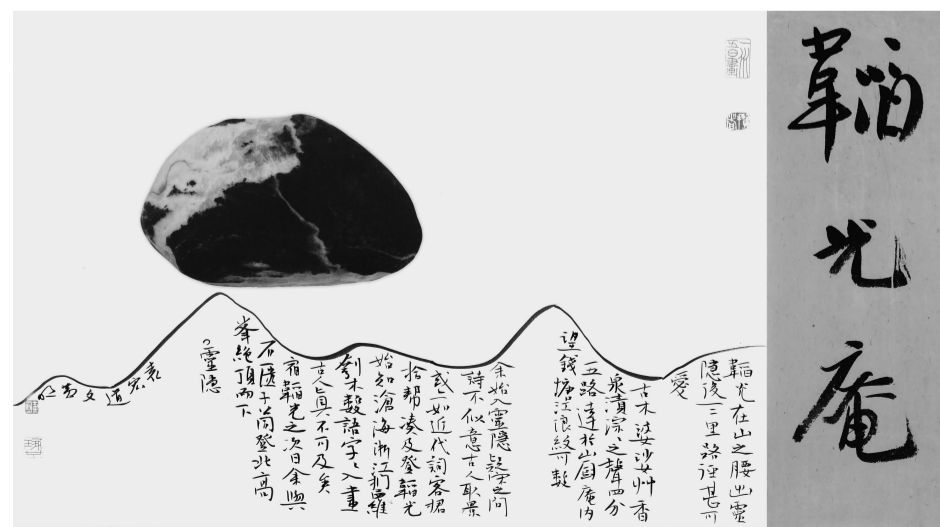 韜光庵
韜光在山之腰出靈
隱後一二里路徑甚可
愛
古木婆娑艸香
泉漬淙々之聲四分
五路達於山厨庵内
望錢塘江浪紋可數
余始入靈隱疑宋之問
詩不似意古人取景
或亦如近代詞客捃
拾幫湊及登韜光
始知滄海浙江捫蘿
刳木數語字々入畫
古人真不可及矣
宿韜光之次日余與
石匱子公同登北高
峯絶頂而下
靈隱
袁宏道文